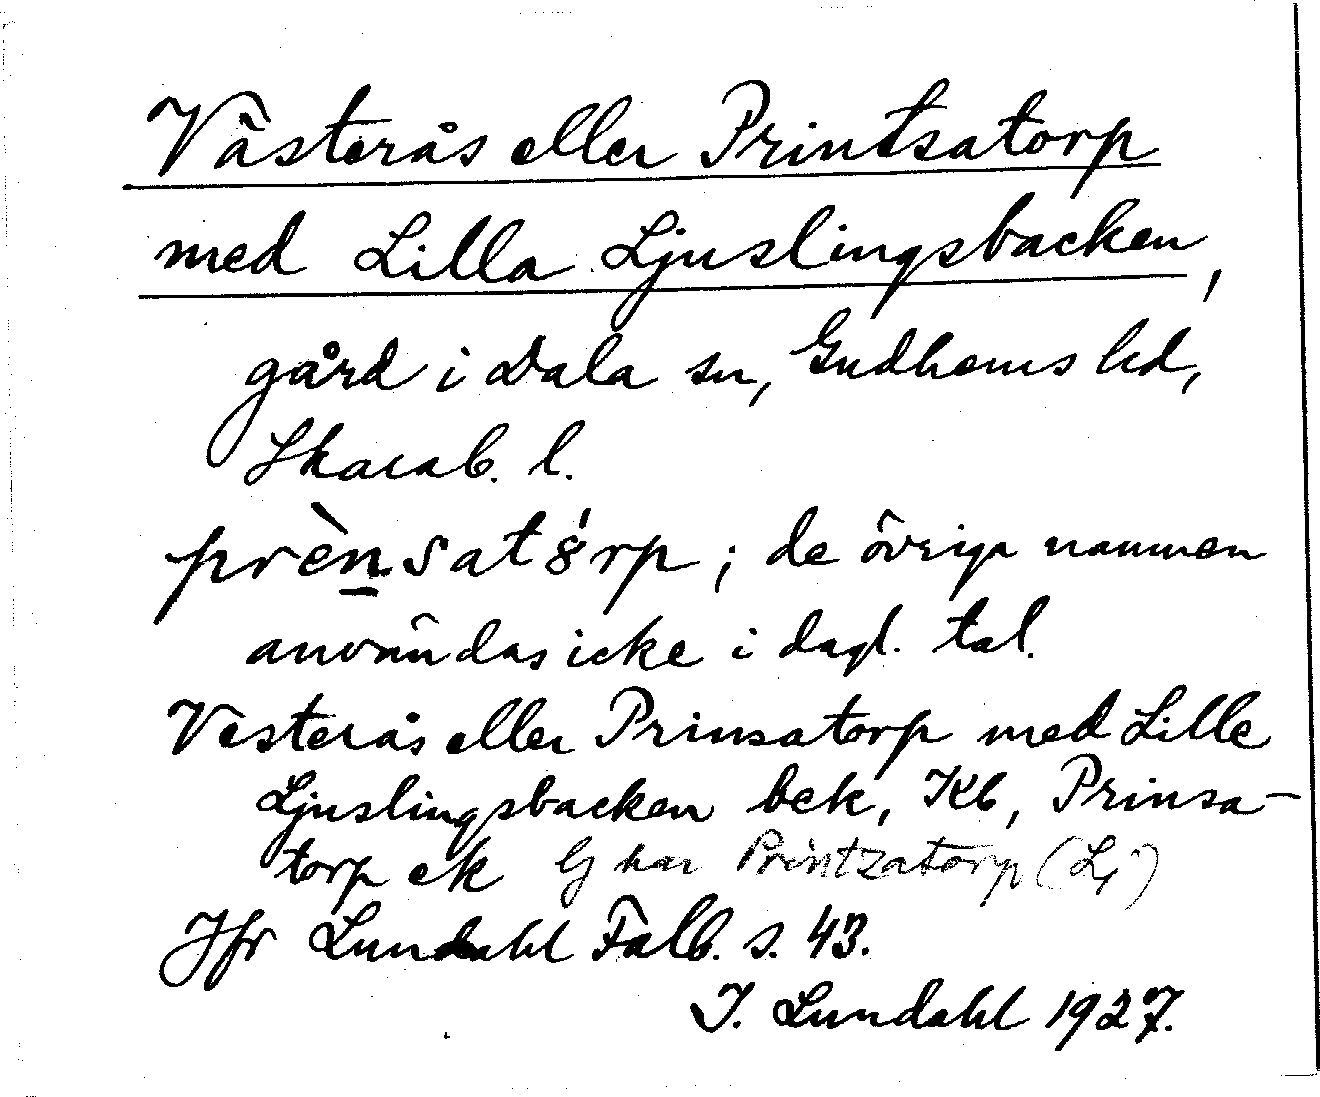 Västerås eller Printsatorp
med Lilla Ljuslingsbacken,
gård i Dala sn, Gudhems hd,
Skarab. l.
prèn̲sat8́rp; de övriga namnen
användas icke i dagl. tal.
Vesterås eller Prinsatorp med Lille
Ljuslingsbacken bek, Kb, Prinsa-
torp ek Gj har Printzatorp (Lj)
Jfr Lundahl Falb. s. 43.
I. Lundahl 1927.